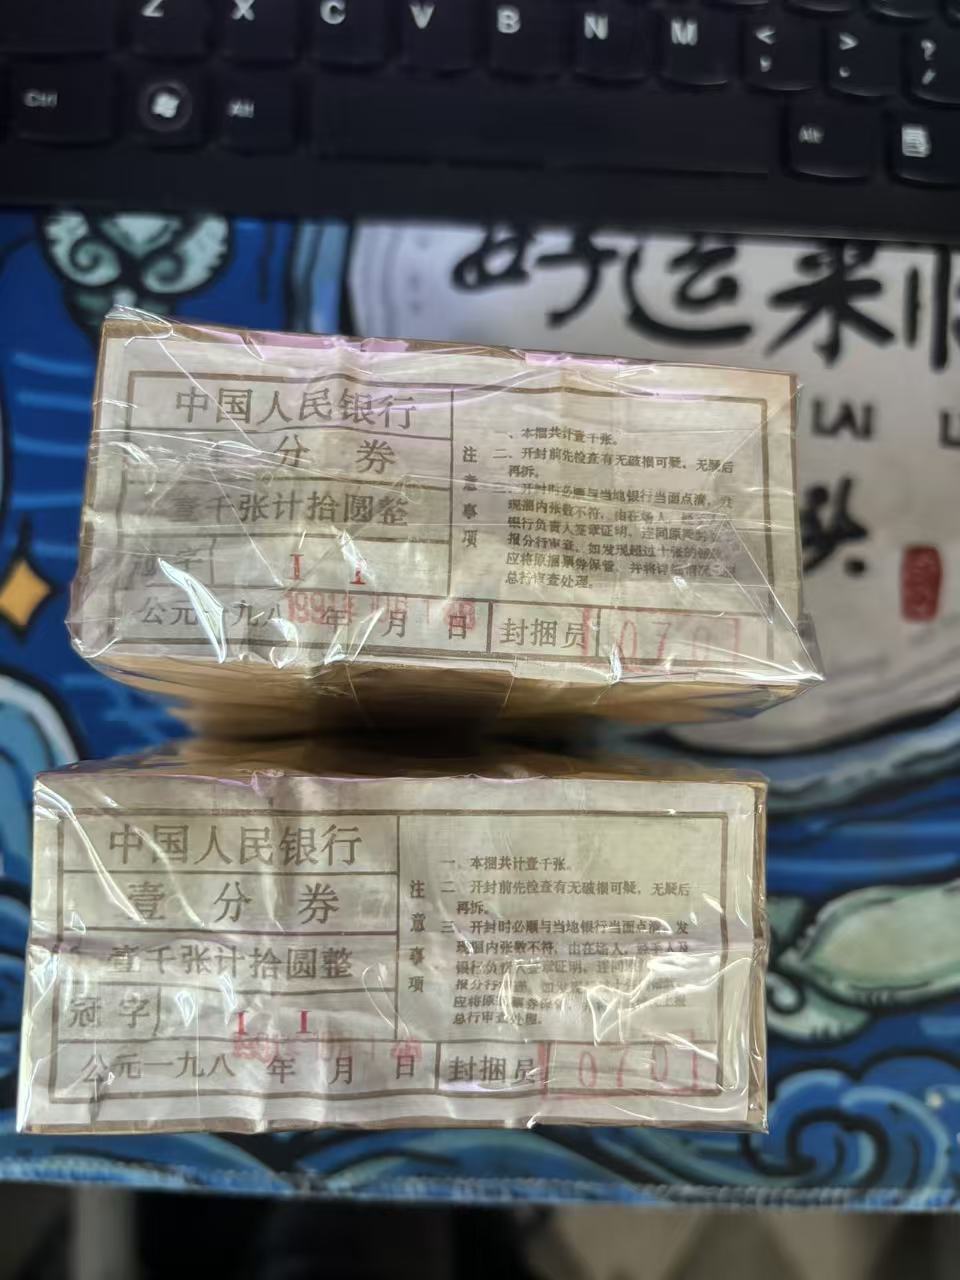 Z X C V B N M < , > . ? /
Ctrl Alt Alt
好运来临
LAI
中国人民银行
分 券
壹千张计拾圆整
冠字
I I
公元一九八 年 月 日
封捆员
070
注意事项
一、本捆共计壹千张。
二、开封前先检查有无破损可疑,无疑后
再拆。
三、开封时必顺与当地银行当面点清,发
现捆内张数不符,由在场人、
银行负责人签章证明,连同原
报分行审查,如发现超过十张的
应将原捆票券保管,并将详细情况
总行审查处理。
中国人民银行
壹 分 券
壹千张计拾圆整
冠字
I I
公元一九八 年 月 日
封捆员
0701
注意事项
一、本捆共计壹千张。
二、开封前先检查有无破损可疑,无疑后
再拆。
三、开封时必顺与当地银行当面点清,发
现捆内张数不符,由在场人、经手人及
银行负责人签章证明,连同
报分行审查,如发
应将原捆票券保管,
总行审查处理。